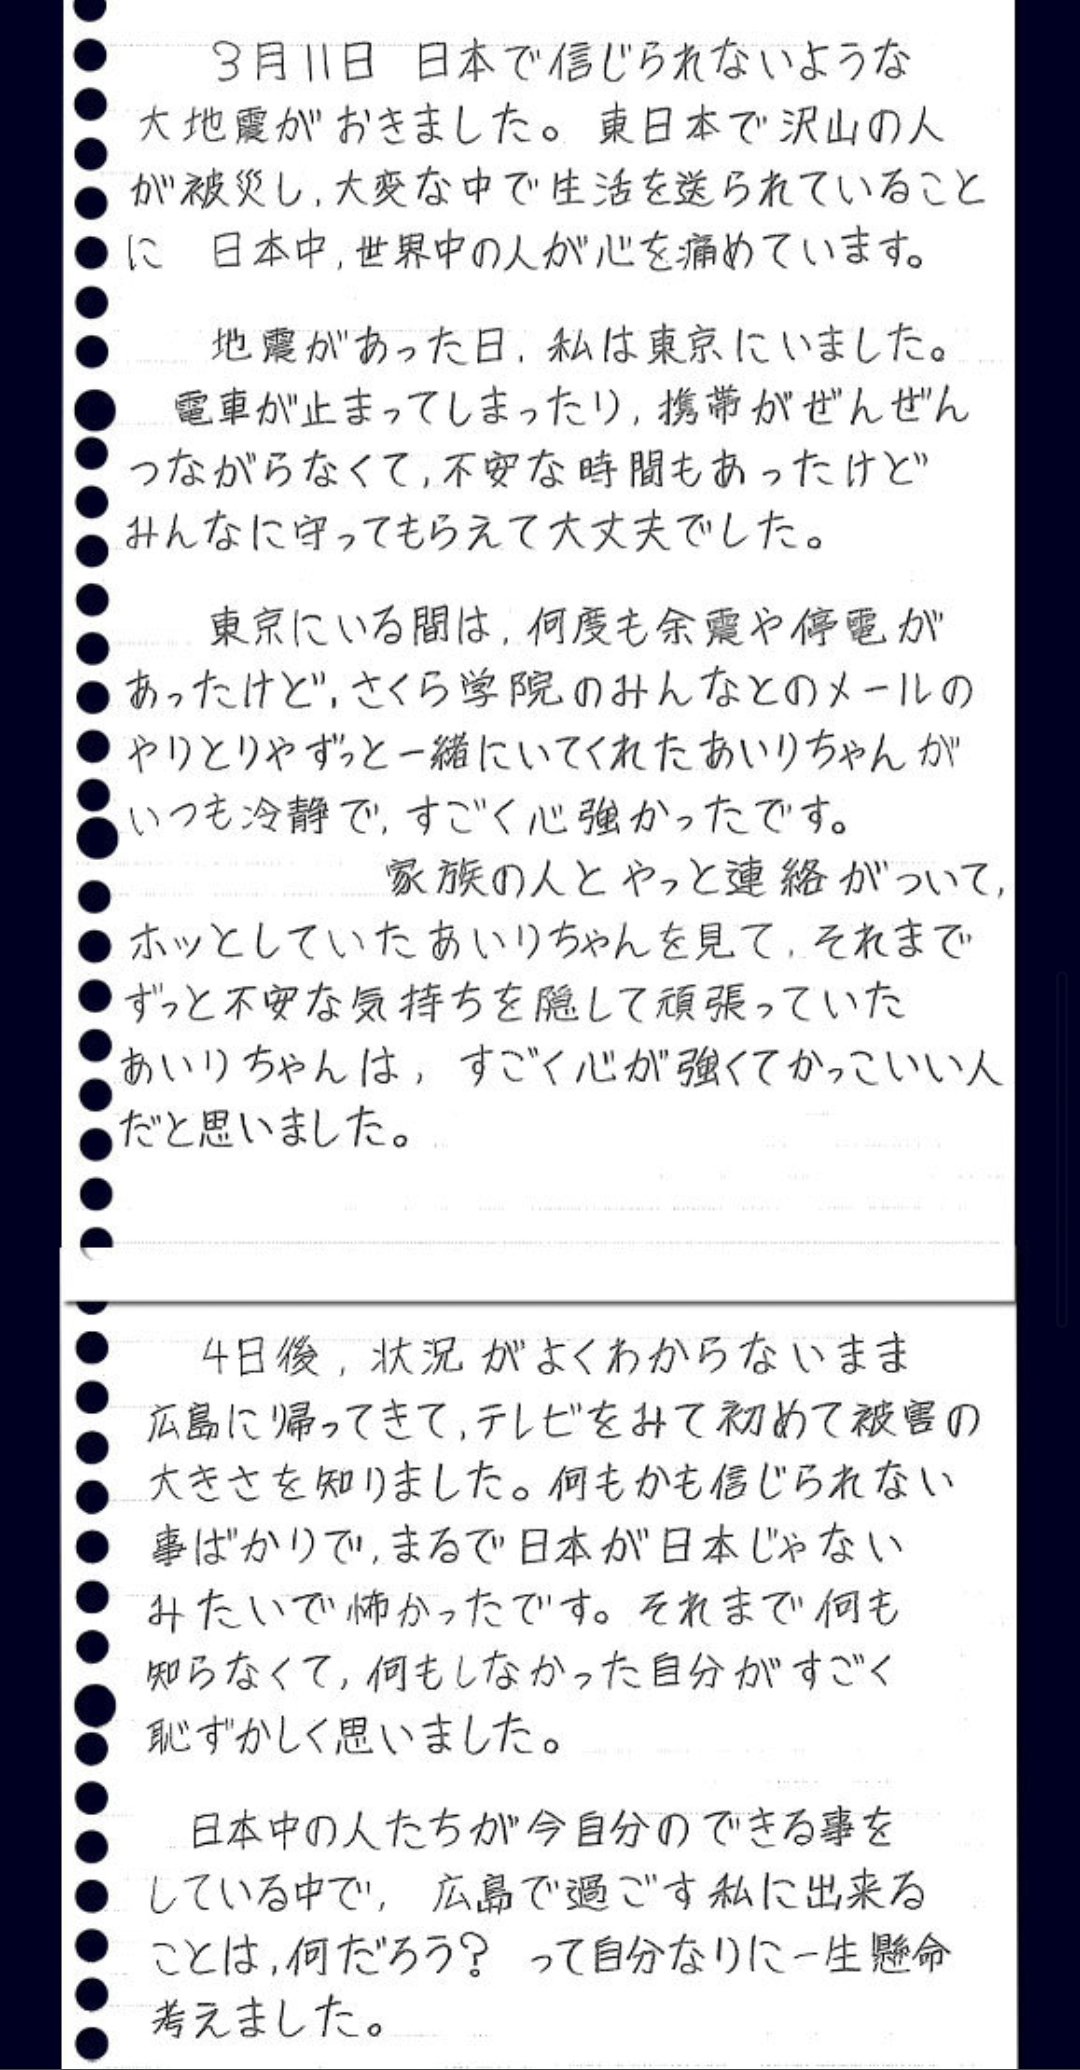 3月11日 日本で信じられないような
大地震がおきました。東日本で沢山の人
が被災し,大変な中で生活を送られていること
に 日本中,世界中の人が心を痛めています。
地震があった日,私は東京にいました。
電車が止まってしまったり,携帯がぜんぜん
つながらなくて,不安な時間もあったけど
みんなに守ってもらえて大丈夫でした。
東京にいる間は,何度も余震や停電が
あったけど,さくら学院のみんなとのメールの
やりとりやずっと一緒にいてくれたあいりちゃんが
いつも冷静で,すごく心強かったです。
家族の人とやっと連絡がついて,
ホッとしていたあいりちゃんを見て,それまで
ずっと不安な気持ちを隠して頑張っていた
あいりちゃんは, すごく心が強くてかっこいい人
だと思いました。
4日後,状況がよくわからないまま
広島に帰ってきて,テレビをみて初めて被害の
大きさを知りました。何もかも信じられない
事ばかりで,まるで日本が日本じゃない
みたいで怖かったです。それまで何も
知らなくて,何もしなかった自分がすごく
恥ずかしく思いました。
日本中の人たちが今自分のできる事を
している中で, 広島で過ごす私に出来る
ことは,何だろう? って自分なりに一生懸命
考えました。